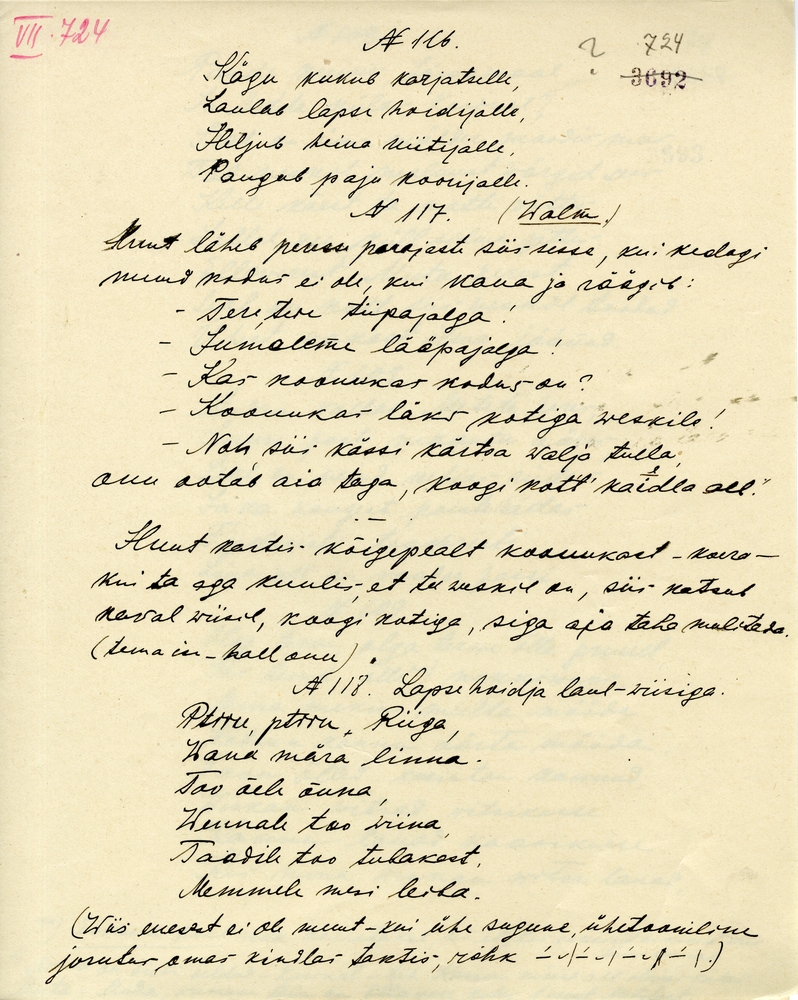 VII. 724
№ 116.
? 724
3692
Kägu kukub karjatselle,
Laulab lapse hoidijalle,
Hiljub heina niitijalle,
Paugub paju koorijalle.
№ 117. (Walm.)
Hunt läheb peresse parajaste siis sisse, kui kedagi
muud kodus ei ole, kui kana ja räägib:
- Tere, tere tiipajalga!
- Jumaleme lääpajalga!
- Kas koonukas kodus on?
- Koonukas läks kotiga weskile!
- Noh siis kässi kärssa walja tulla,
onu ootab aia taga, koogi kott kaidla all."
Hunt kartis kõigepealt koonukast - koera -
kui ta aga kuulis, et ta weskil on, siis katsub
kaval wiisil, koogi kotiga, siga aja taha melitada.
(tema ise - hall onu).
№ 118. Lapsehoidja laul - wiisiga.
Ptrru, ptrru, Riiga,
Wana mära linna.
Too õele õuna,
Wennale too wiina,
Taadile too tubakest,
Memmele mesi leiba.
(Wiis enesest ei ole muut - kui ühe sugune, ühetooniline
jorutus omas kindlas taktis, rõhk